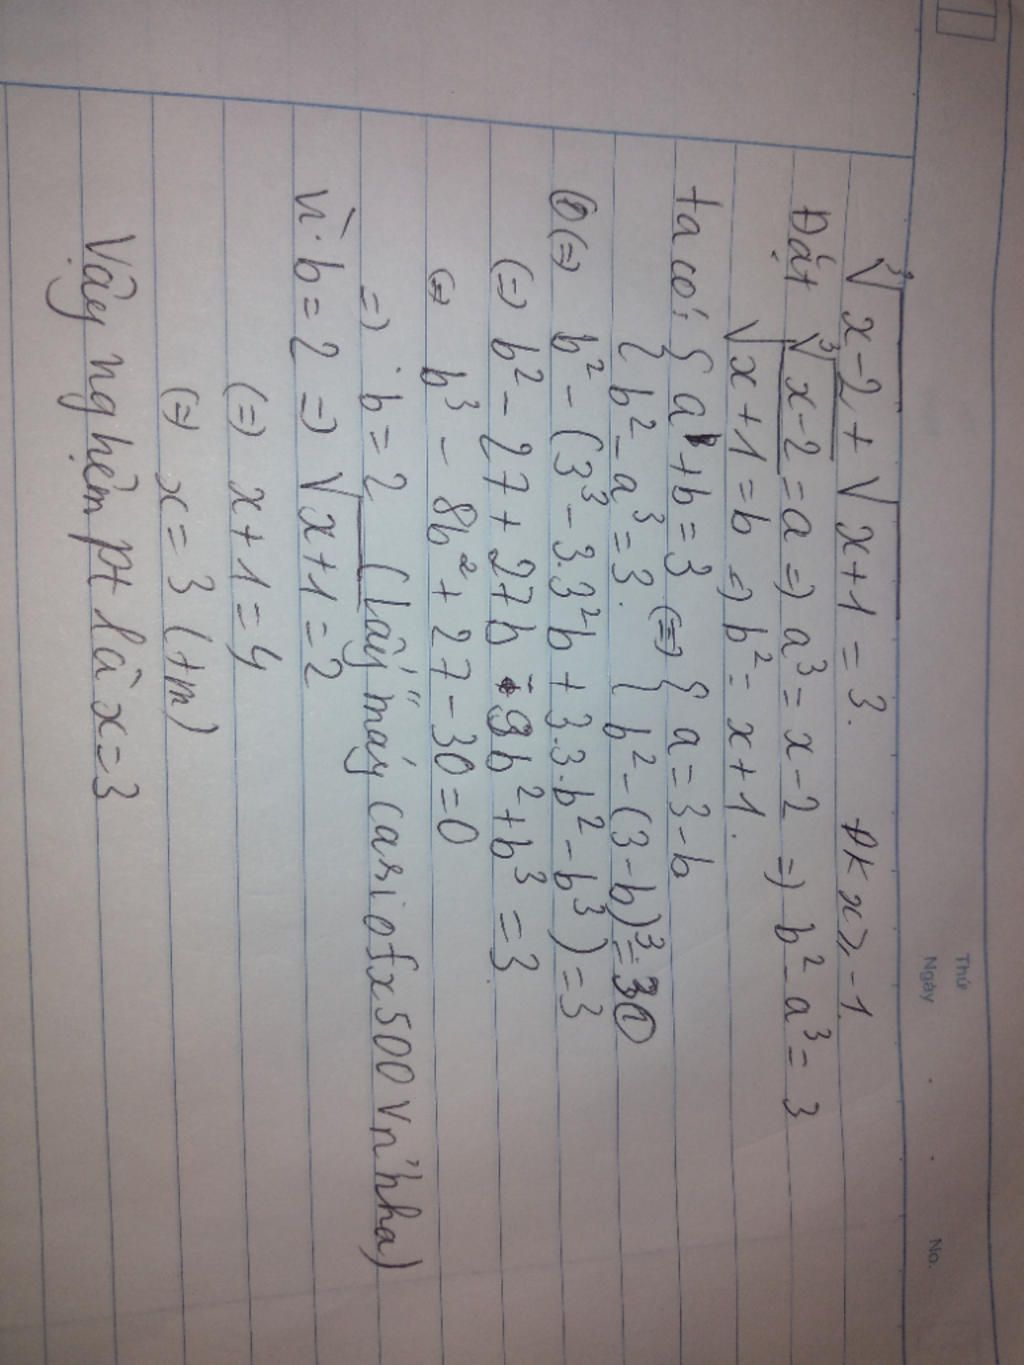 Thứ
Ngày
No.
∛x-2 + √x+1 = 3. ĐK x ≥ -1
Đặt ∛x-2 = a => a³ = x-2 => b² - a³ = 3
√x+1 = b => b² = x+1.
ta có: { a + b = 3 (=) { a = 3-b
{ b² - a³ = 3. { b² - (3-b)³ = 3 ①
① (=) b² - (3³ - 3.3²b + 3.3.b² - b³) = 3
(=) b² - 27 + 27b - 9b² + b³ = 3
(=) b³ - 8b² + 27 - 30 = 0
=> b = 2 (lấy máy casio fx500 Vn nha)
Vì b = 2 => √x+1 = 2
(=) x+1 = 4
(=) x = 3 (tm)
Vậy nghệm pt là x = 3